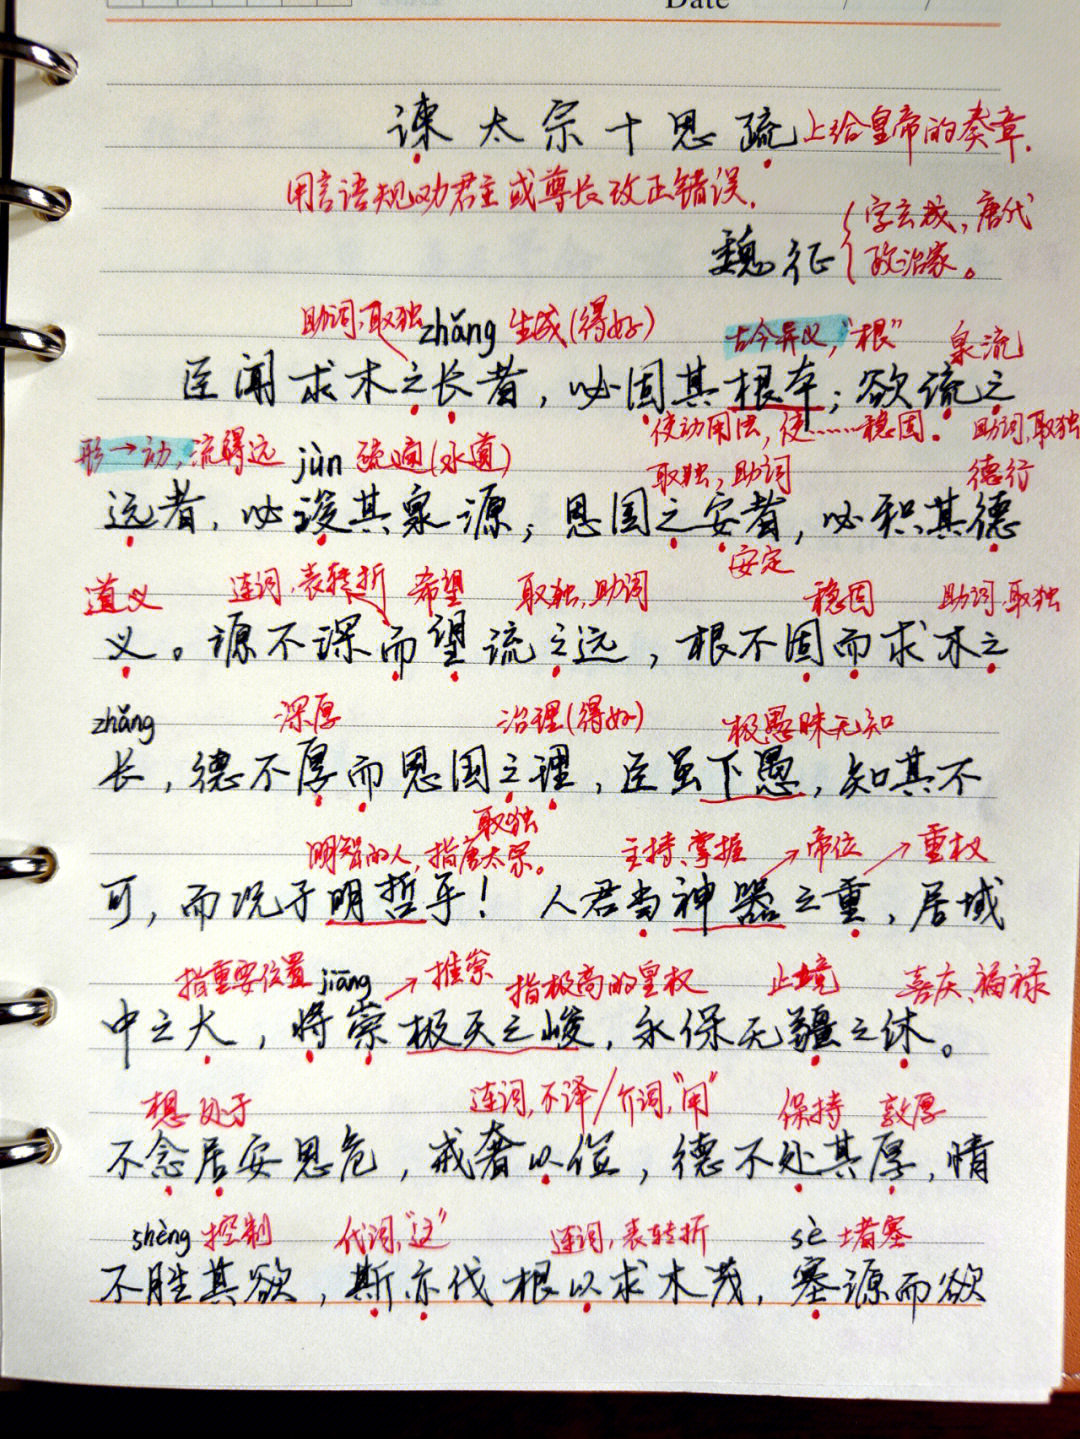 Date
谏太宗十思疏 上给皇帝的奏章.
用言语规劝君主或尊长改正错误.
字玄成,唐代
魏征 政治家。
助词,取独 zhǎng 生成(得好) 古今异义,"根" 泉流
臣闻求木之长者,必固其根本;欲流之
使动用法,使……稳固. 助词,取独
形→动,流得远 jùn 疏通(水道) 取独,助词 德行
远者,必浚其泉源;思国之安者,必积其德
安定
道义 连词,表转折 希望 取独,助词 稳固 助词,取独
义。源不深而望流之远,根不固而求木之
zhǎng 深厚 治理(得好) 极愚昧无知
长,德不厚而思国之理,臣虽下愚,知其不
取独
明智的人,指唐太宗。 主持、掌握 →帝位 →重权
可,而况于明哲乎! 人君当神器之重,居域
指重要位置 jiāng →推崇 指极高的皇权 止境 喜庆、福禄
中之大,将崇极天之峻,永保无疆之休。
想 处于 连词,不译/介词,"用" 保持 敦厚
不念居安思危,戒奢以俭,德不处其厚,情
shèng 控制 代词,"这" 连词,表转折 sè 堵塞
不胜其欲,斯亦伐根以求木茂,塞源而欲